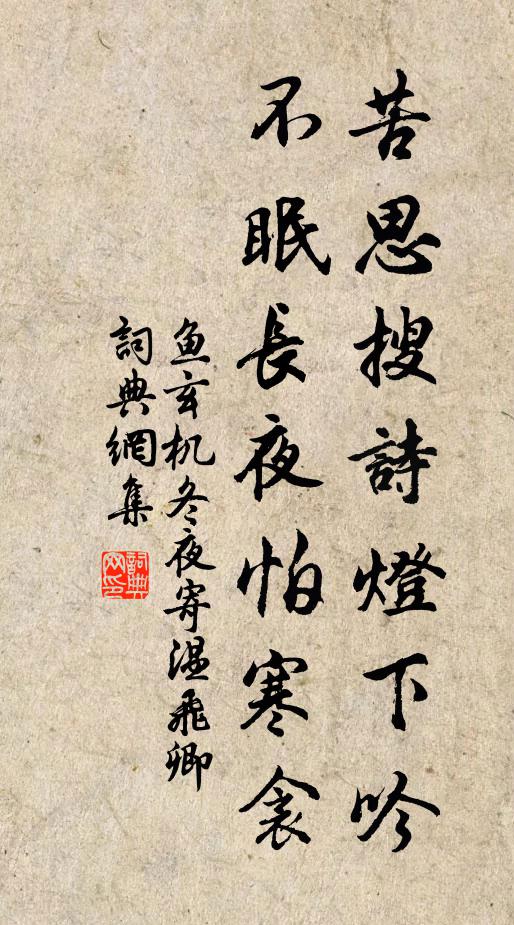 苦思搜詩燈下吟
不眠長夜怕寒衾
鱼玄机冬夜寄温飛卿
詞典網集
詞典网印